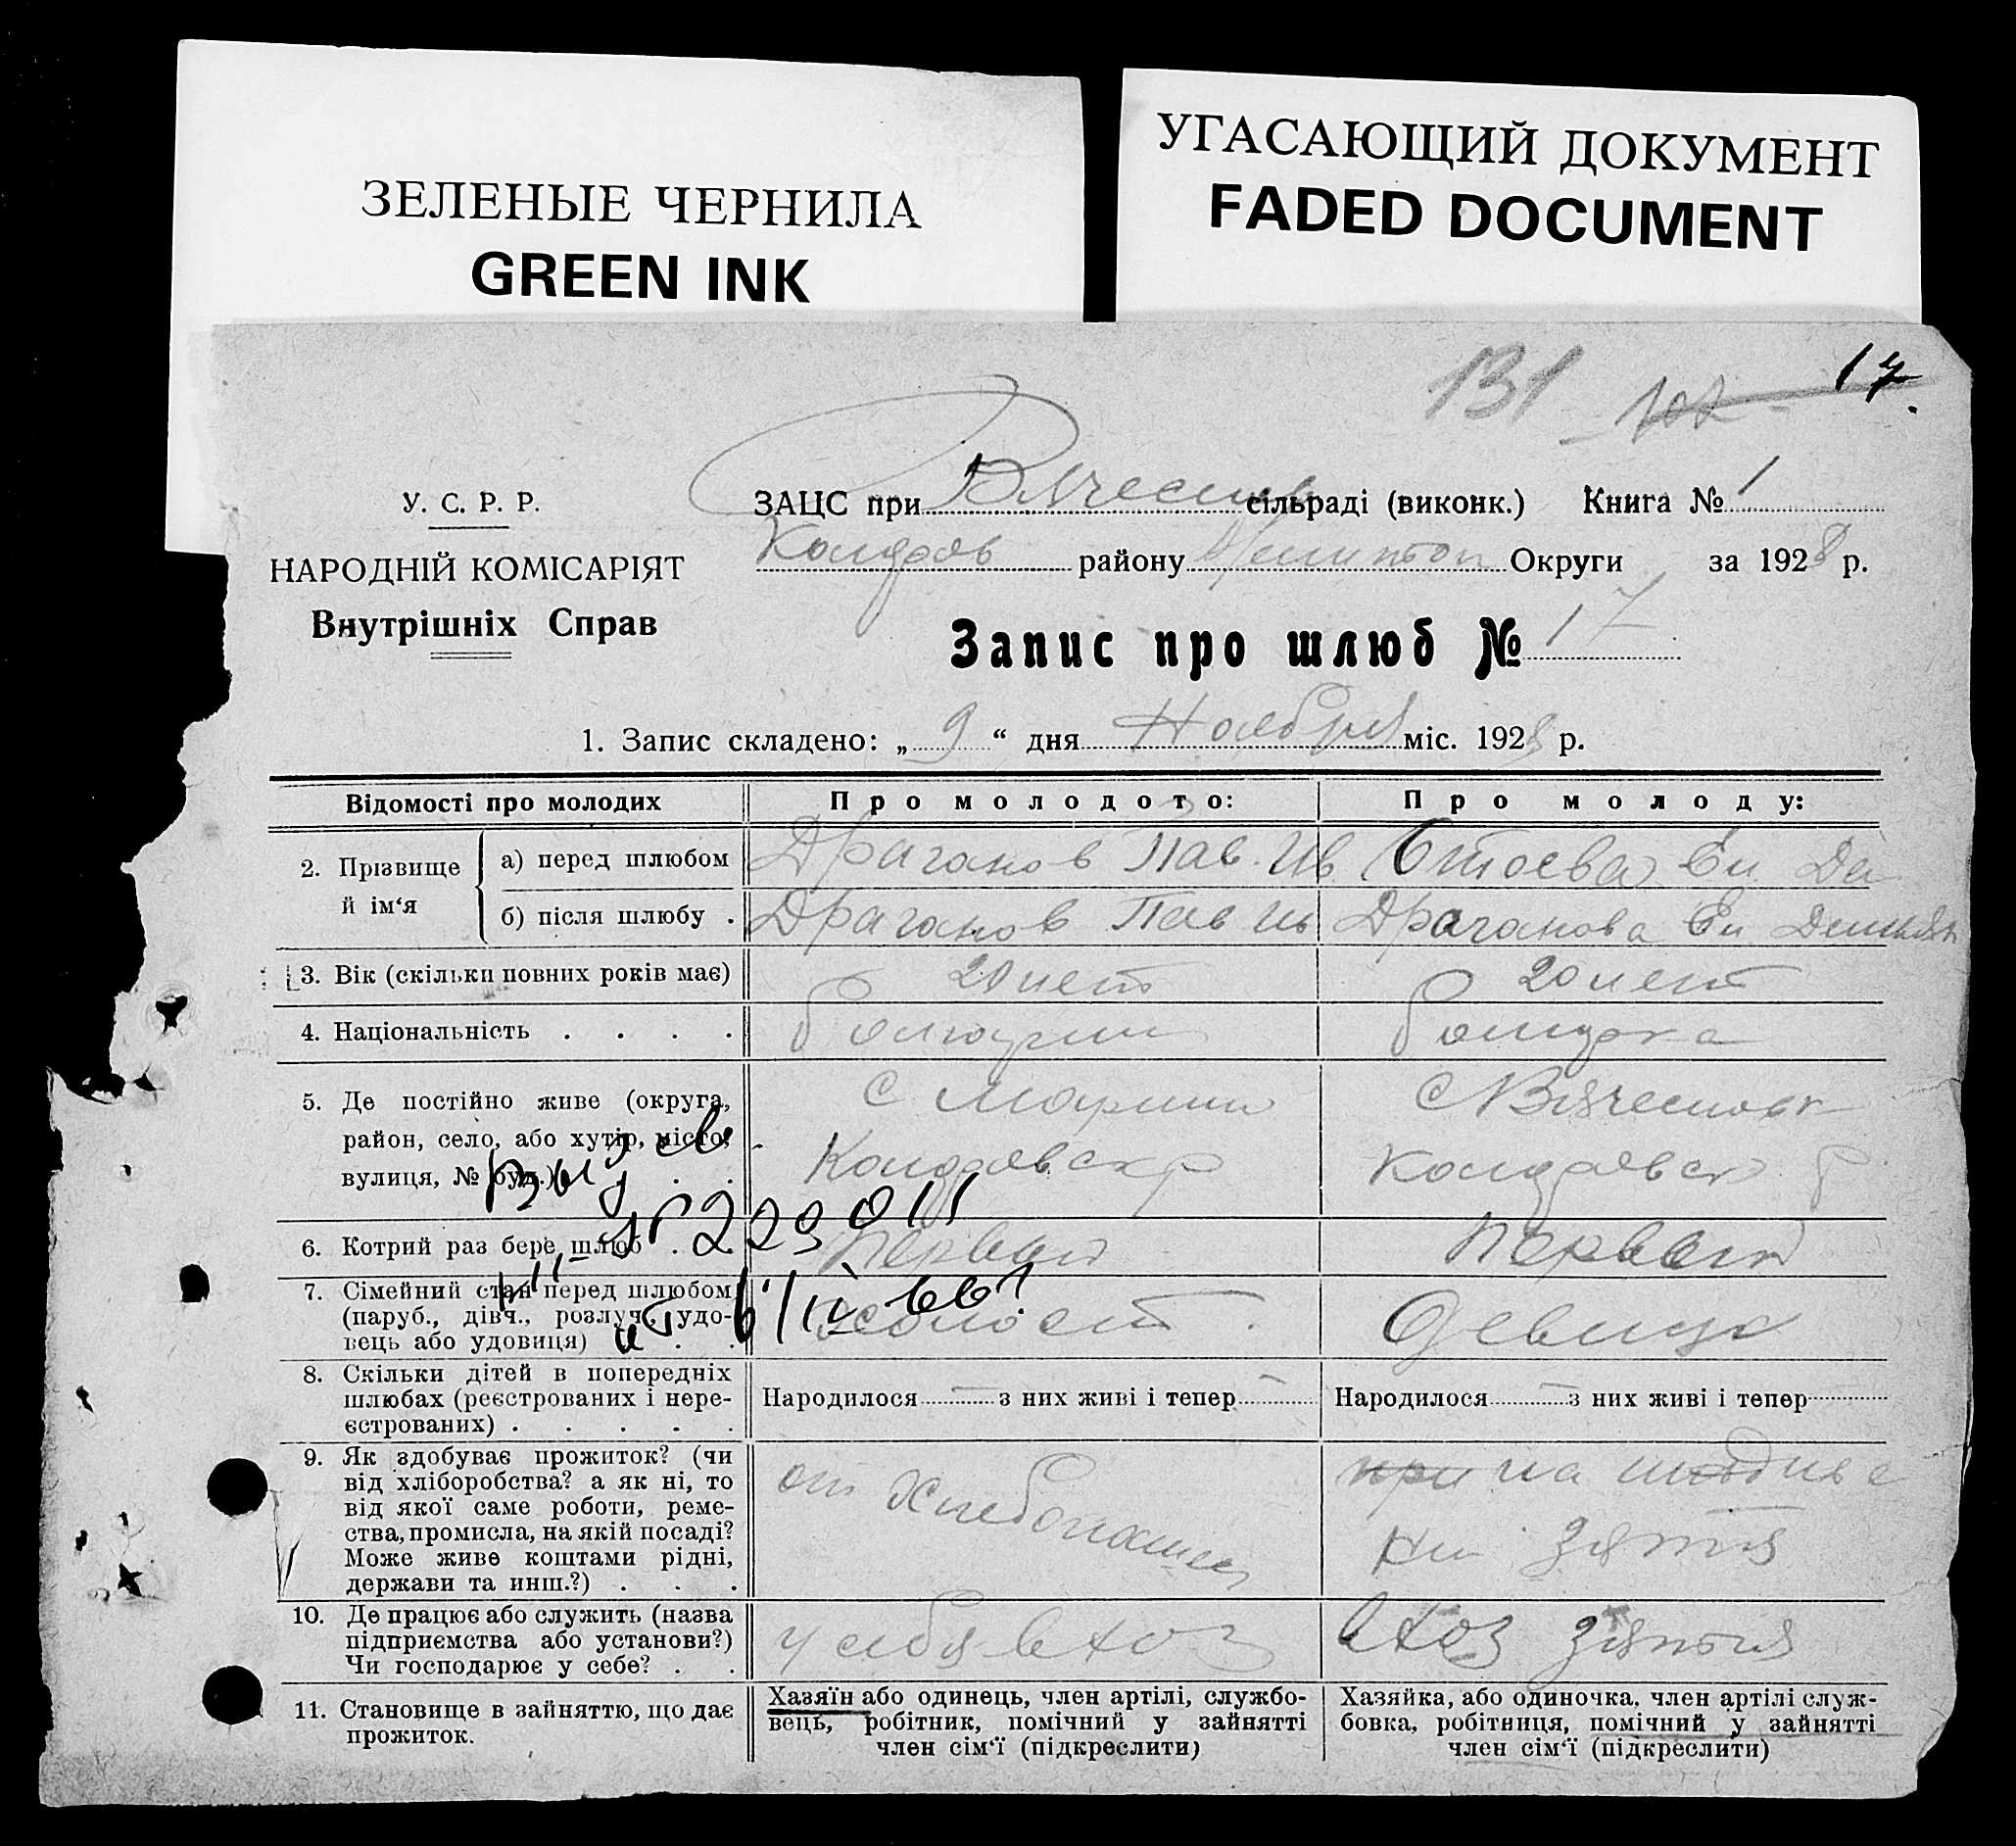 ЗЕЛЕНЫЕ ЧЕРНИЛА
GREEN INK
УГАСАЮЩИЙ ДОКУМЕНТ
FADED DOCUMENT
131 17
У. С. Р. Р.
НАРОДНІЙ КОМІСАРІЯТ
Внутрішніх Справ
ЗАЦС при сільраді (виконк.) Книга № 1
району Округи за 1928 р.
Запис про шлюб № 17
1. Запис складено: „ 9 “ дня Ноября міс. 1928 р.
Відомості про молодих
Про молодого:
Про молоду:
2. Прізвище й ім‘я
а) перед шлюбом
Драганов Пав. Ив
Стоева Ел Де
б) після шлюбу .
Драганов Пав Ив
Драганова Ел
3. Вік (скільки повних років має)
20 лет
20 лет
4. Національність . . . .
болгарин
болгарка
5. Де постійно живе (округа,
район, село, або хутір, місто,
вулиця, № буд.) . . .
с
Коларовск р
с Вячеславк
Коларовск р
6. Котрий раз бере шлюб . .
Первый
Первый
7. Сімейний стан перед шлюбом
(паруб., дівч., розлуч., удо-
вець або удовиця) . .
холост
девица
Выд св
№ 223011
6/IV 66г
8. Скільки дітей в попередніх
шлюбах (реєстрованих і нере-
єстрованих) . . . . .
Народилося — з них живі і тепер —
Народилося — з них живі і тепер
9. Як здобуває прожиток? (чи
від хліборобства? а як ні, то
від якої саме роботи, реме-
ства, промисла, на якій посаді?
Може живе коштами рідні,
держави та инш.?) . . .
от Хлебопаш
при на иждиве
нии Зятя
10. Де працює або служить (назва
підприємства або установи?)
Чи господарює у себе? . .
у себя в хоз
в хоз зятя
11. Становище в зайняттю, що дає
прожиток.
Хазяїн або одинець, член артілі, службо-
вець, робітник, помічний у зайнятті
член сім‘ї (підкреслити)
Хазяйка, або одиночка, член артілі служ-
бовка, робітниця, помічний у зайнятті
член сім‘ї (підкреслити)